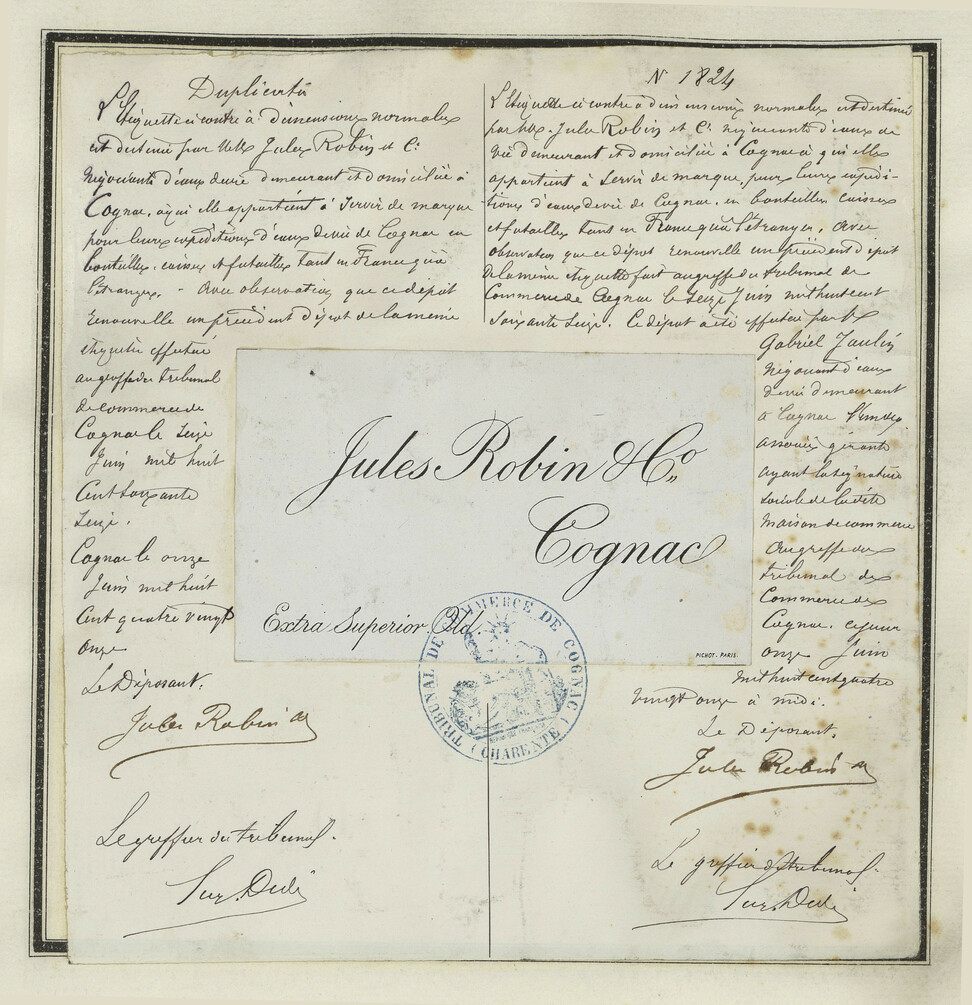 Duplicata
L'Etiquette ci contre à dimensions normales
est destinée par MM. Jules Robin et Cie
négociants d'eaux de vie demeurant et domiciliés à
Cognac, à qui elle appartient à servir de marque
pour leurs expéditions d'eaux de vie de Cognac en
bouteilles, caisses et futailles tant en France qu'à
l'étranger. - Avec observation que ce dépôt
renouvelle un précédent dépôt de la même
étiquette effectué
au greffe du tribunal
de commerce de
Cognac le seize
Juin mil huit
cent soixante
seize.
Cognac le onze
Juin mil huit
cent quatre vingt
onze
Le Déposant.
Jules Robin &
Le greffier du tribunal.
N 1824
L'Etiquette ci contre à dimensions normales est destinée
par MM. Jules Robin et Cie négociants d'eaux de
vie demeurant et domiciliés à Cognac à qui elle
appartient à servir de marque pour leurs expédi-
tions d'eaux de vie de Cognac, en bouteilles, caisses
et futailles tant en France qu'à l'étranger. Avec
observation que ce dépôt renouvelle un précédent dépôt
de la même étiquette fait au greffe du tribunal de
Commerce de Cognac le seize Juin mil huit cent
soixante seize. Ce dépôt a été effectué par Mr
Gabriel Jaulin
négociant d'eaux
de vie demeurant
à Cognac l'un des
associés gérants
ayant la signature
sociale de la dite
maison de commerce
au greffe du
tribunal de
Commerce de
Cognac, ce jour
onze Juin
mil huit cent quatre
vingt onze à midi.
Le Déposant.
Jules Robin &
Le greffier du tribunal.
Jules Robin & Co.
Cognac
Extra Superior Old.
PICHOT. PARIS.
TRIBUNAL DE COMMERCE DE COGNAC
(CHARENTE)